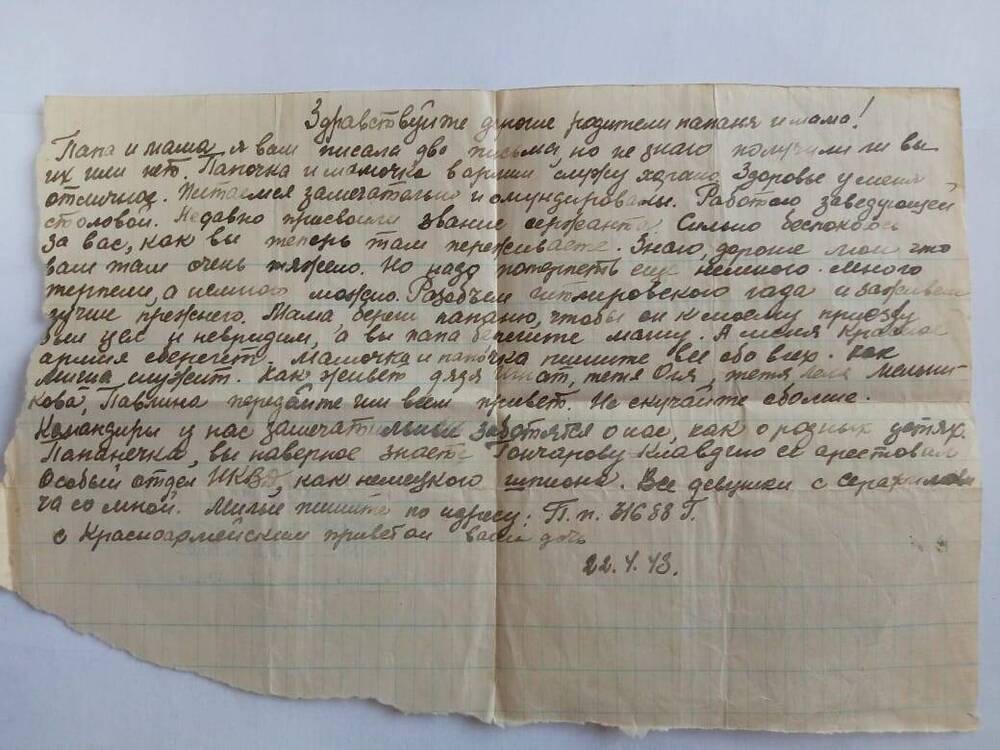 Здравствуйте дорогие родители папаня и мама!
Папа и мама, я вам писала два письма, но не знаю получили ли вы
их или нет. Папочка и мамочка в армии служу хорошо. Здоровье у меня
отличное. Питаемся замечательно и омундированы. Работаю заведующей
столовой. Недавно присвоили звание сержанта. Сильно беспокоюсь
за вас, как вы теперь там переживаете. Знаю, дорогие мои что
вам там очень тяжело. Но надо потерпеть еще немного. Много
терпели, а немного можно. Разобъем гитлеровского гада и заживем
лучше прежнего. Мама береги папаню, чтобы он к моему приезду
был цел и невридим, а вы папа берегите маму. А меня Красная
армия сбережет. Мамочка и папочка пишите все обо всех. Как
Миша служит. Как живет дядя Игнат, тетя Оля, тетя Леля Мельни-
кова, Павлина передайте им всем привет. Не скучайте сболше.
Командиры у нас замечательные заботятся о нас, как о родных детях.
Папанечка, вы наверное знаете Гончарову Клавдию ее арестовал
Особый отдел НКВД, как немецкого шпиона. Все девушки с Серахимови
ча со мной. Милые пишите по адресу: П.п. 31688 Г.
с Красноармейским приветом ваша дочь
22.V.43.